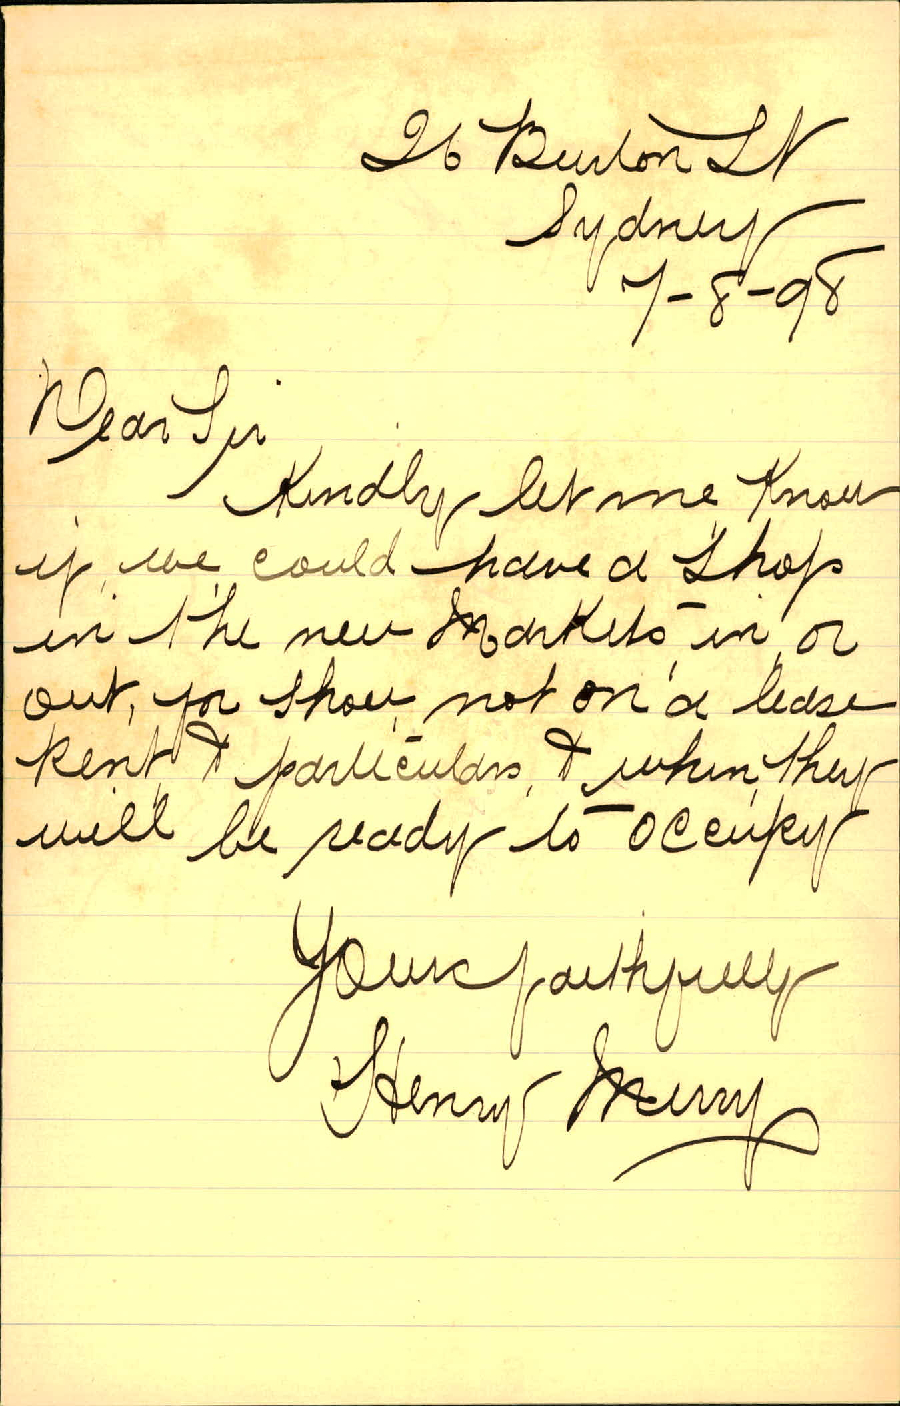 26 Burton St
Sydney
7-8-98
Dear Sir
Kindly let me Know
if we could have a Shop
in the new Markets in or
out, for Show not on a lease
Rent & particulars & when they
will be ready to occupy
Yours faithfully
Henry Merry